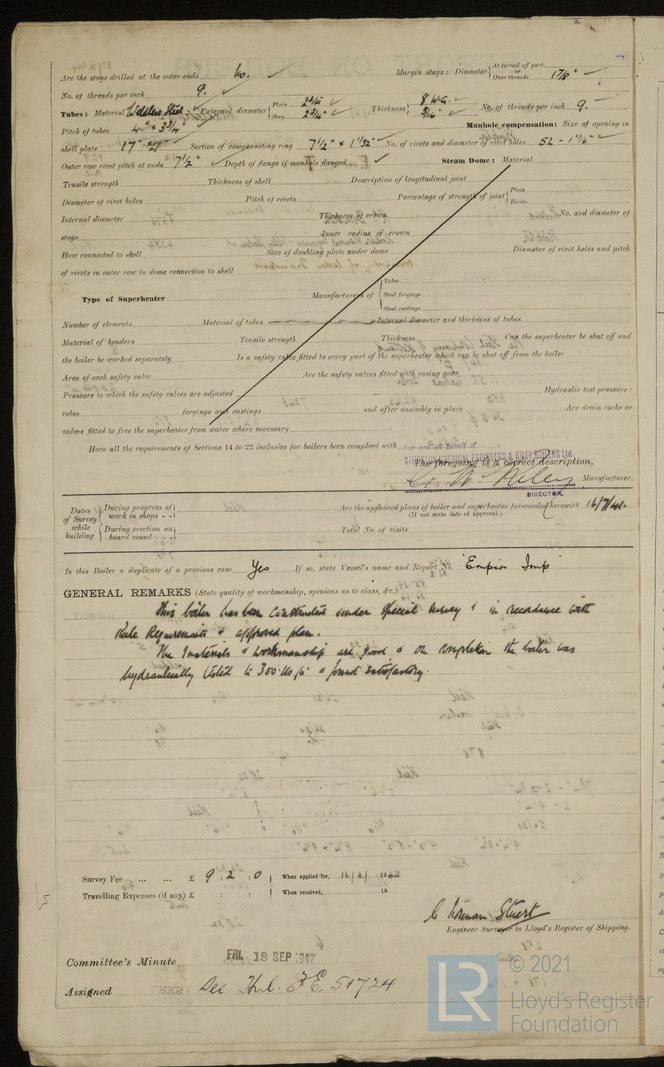 Are the stays drilled at the outer ends No. Margin stays: Diameter { At turned off part, or Over threads 1 7/8"
No. of threads per inch 9.
Tubes: Material Weldless Steel External diameter { Plain 2 3/4" Stay 2 3/4" Thickness { 8 WG. 5/16" No. of threads per inch 9.
Pitch of tubes 4" x 3 3/4" Manhole compensation: Size of opening in
shell plate 17" x Section of compensating ring 7 1/2" x 1 1/32" No. of rivets and diameter of rivet holes 52 - 1 1/16"
Outer row rivet pitch at ends 7 1/2" Depth of flange if manhole flanged Steam Dome: Material
Tensile strength Thickness of shell Description of longitudinal joint
Diameter of rivet holes Pitch of rivets Percentage of strength of joint { Plate Rivets
Internal diameter Thickness of crown No. and diameter of
stays Inner radius of crown
How connected to shell Size of doubling plate under dome Diameter of rivet holes and pitch
of rivets in outer row in dome connection to shell
Type of Superheater Manufacturers of { Tubes Steel forgings Steel castings
Number of elements Material of tubes Internal diameter and thickness of tubes
Material of headers Tensile strength Thickness Can the superheater be shut off and
the boiler be worked separately Is a safety valve fitted to every part of the superheater which can be shut off from the boiler
Area of each safety valve Are the safety valves fitted with easing gear
Pressure to which the safety valves are adjusted Hydraulic test pressure:
tubes forgings and castings and after assembly in place Are drain cocks or
valves fitted to free the superheater from water where necessary
Have all the requirements of Sections 14 to 22 inclusive for boilers been complied with
For and on behalf of
CHEMICAL ENGINEERS & RILEY BOILERS Ltd.
The foregoing is a correct description,
Manufacturer.
DIRECTOR.
Dates of Survey while building { During progress of work in shops - - Are the approved plans of boiler and superheater forwarded herewith 16/7/41.
(If not state date of approval.)
During erection on board vessel - - - Total No. of visits
Is this Boiler a duplicate of a previous case Yes If so, state Vessel's name and Report No. "Empire Imp"
GENERAL REMARKS (State quality of workmanship, opinions as to class, &c.)
This boiler has been constructed under special survey & in accordance with
Rule Requirements & approved plan.
The materials & workmanship are good & on completion the boiler was
hydraulically tested to 350 lbs/□" & found satisfactory.
Survey Fee ... ... £ 9 : 2 : 0 When applied for, 19 42
Travelling Expenses (if any) £ : : When received, 19
C. Norman Stuart
Engineer Surveyor to Lloyd's Register of Shipping.
Committee's Minute FRI. 18 SEP 1942
Assigned See Hul. F.E. 51724
LR © 2021
Lloyd's Register
Foundation